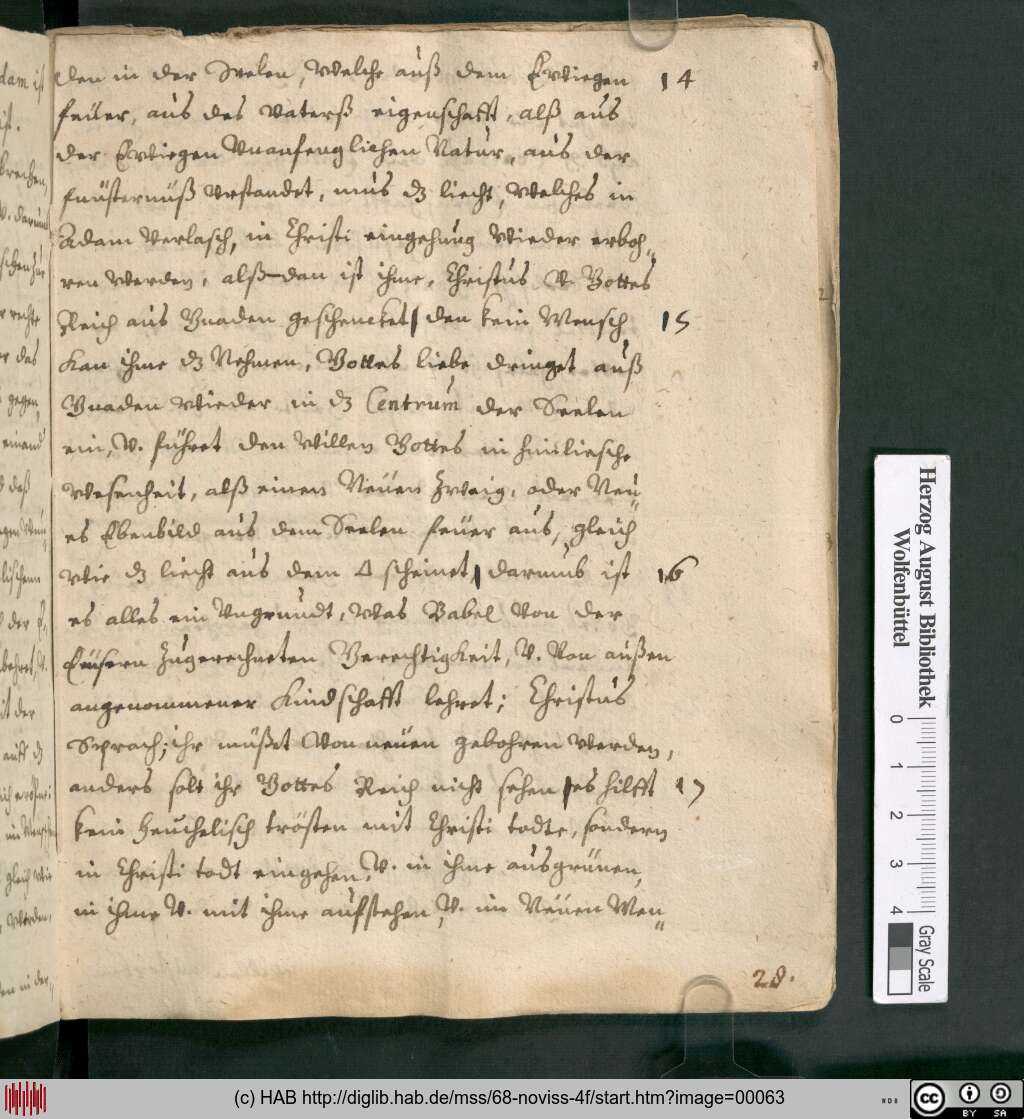 den in der Seelen, Welche auß dem Ewiegen 14
feüer, aus des Vaterß eigenschafft, alß aus
der Ewiegen Vnanfenglichen Natur, aus der
finüsternüß Urstandet, mus dz liecht, Welches in
Adam Verlasch, in Christi eingehung Wieder erboh„
ren Werden, alß-dan ist ihme, Christus V. Gottes
Reich aus Gnaden geschencket| den kein Mensch 15
Kan ihme dz Nehmen, Gottes liebe dringet auß
Gnaden Wieder in dz Centrum der Seelen
ein, V. führet den Willen Gottes in himlische
Wesenheit, alß einen Neüen Zweig, oder Neü„
es Ebenbild aus dem Seelen feüer aus, gleich
Wie dz liecht aus dem Δ scheinet| darumb ist 16
es alles ein Vngrundt, Was Babel Von der
Eüsern Zugerechneten Gerechtigkeit, V. Von außen
angenommener Kindschafft lehret; Christus
Sprach; ihr müßet Von neüen gebohren Werden,
anders solt ihr Gottes Reich nicht sehen| es hilfft 17
kein heüchelisch trösten mit Christi todte, sondern
in Christi todt eingehen, V. in ihme ausgrünen,
in ihme V. mit ihme aufstehen, V. im Neüen Men„
28.
dam ist
ist.
brechen,
V. darumb
r rechte
er des
gegen,
einand
d daß
lischenn
d der E,
it der
auß dz
gleich Wie
Werden,
den in der„
Herzog August Bibliothek
Wolfenbüttel
0 1 2 3 4
Gray Scale
(c) HAB http://diglib.hab.de/mss/68-noviss-4f/start.htm?image=00063
cc BY SA